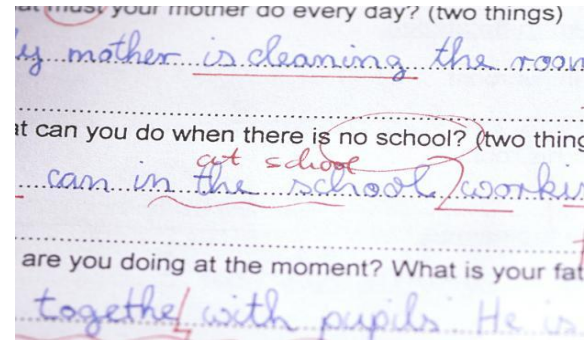 must your mother do every day? (two things)
mother is cleaning the room
can you do when there is no school? (two thing
at school
can in the school workin
are you doing at the moment? What is your fat
togethe with pupils. He is